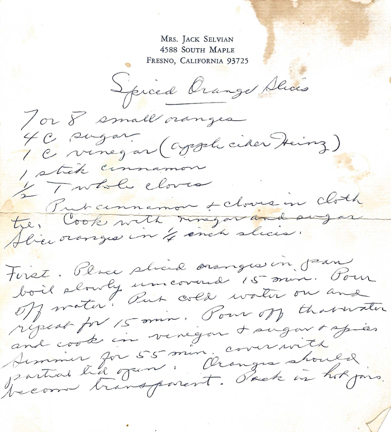 Mrs. Jack Selvian
4588 South Maple
Fresno, California 93725
Spiced Orange Slices
7 or 8 small oranges
4 C sugar
1 C vinegar (apple cider Heinz)
1 stick cinnamon
1/2 T whole cloves
Put cinnamon + cloves in cloth
tie. Cook with vinegar and sugar
Slice oranges in 1/4 inch slices.
First. Place sliced oranges in pan
boil slowly uncovered 15 min. Pour
off water. Put cold water on and
repeat for 15 min. Pour off that water
and cook in vinegar + sugar + spices
Simmer for 55 min. cover with
partial lid open. Oranges should
become transparent. Pack in hot jars.